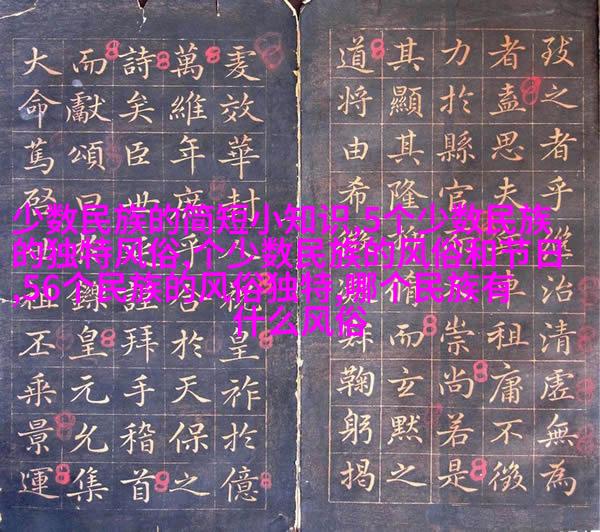 少数民族的简短小知识,5个少数民族
的独特风俗,个少数民族的风俗和节日
,56个民族的风俗独特,哪个民族有
什么风俗
之者乎治清虛無為
者盍思夫祖庸不徵
力於縣官崇尚若是
其顯其隆脩而玄默之
道將由希鞠躬揭
效華封皇祚於億
萬維年於天保之
詩矣臣世謹拜手稽首
而獻頌曰鑠皇元允集
大命篤啓祖丕乘景運